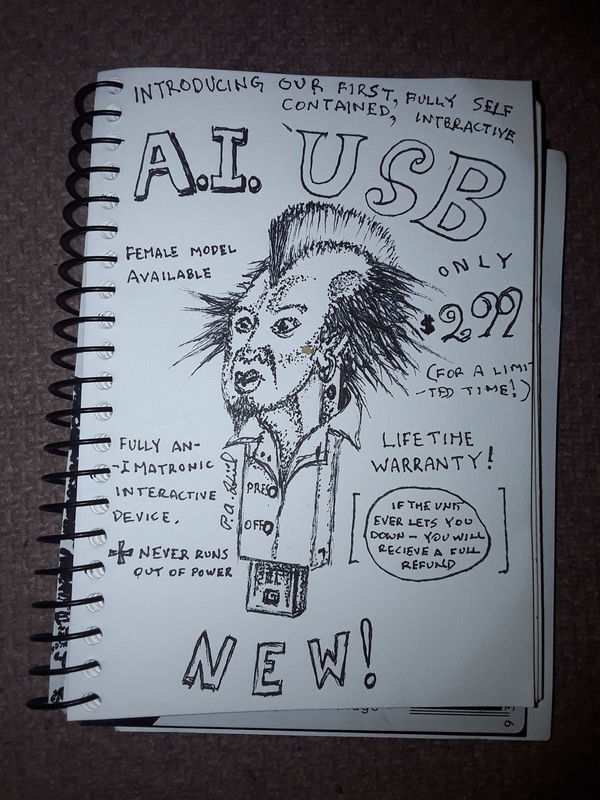 INTRODUCING OUR FIRST, FULLY SELF
CONTAINED, INTERACTIVE
A.I. USB
FEMALE MODEL
AVAILABLE
ONLY
$2.99
(FOR A LIMI-
-TED TIME!)
FULLY AN-
-IMATRONIC
INTERACTIVE
DEVICE.
NEVER RUNS
OUT OF POWER
PRES
OFF
LIFETIME
WARRANTY!
IF THE UNIT
EVER LETS YOU
DOWN - YOU WILL
RECIEVE A FULL
REFUND
NEW!